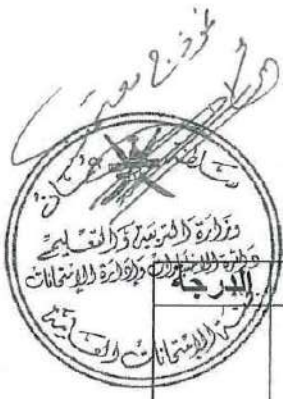 نموذج معتمد
سلطنة عمان
وزارة التربية والتعليم
دائرة الاختبارات وإدارة الامتحانات
الدرجة
الامتحانات العامة